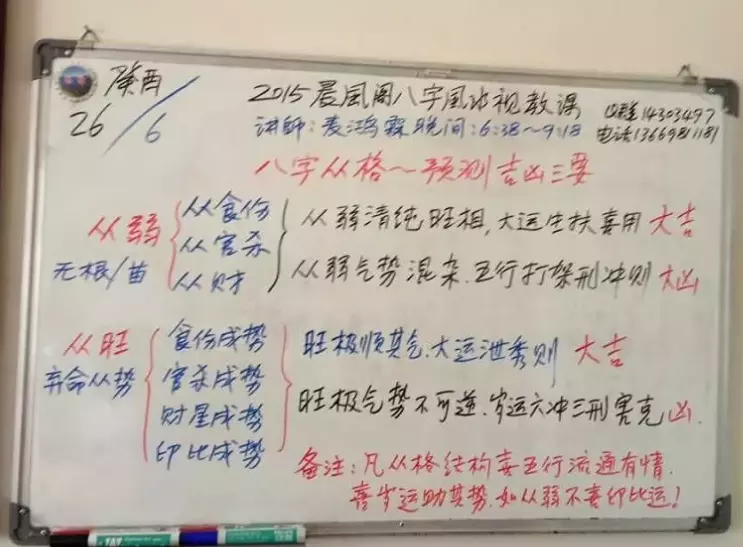 癸酉
26/6
2015晨風阁八字風水视教课
讲師:麦鸿霖晚间:6:38~9:18
Q群14303497
电话13669811181
八字从格~预测吉凶三要
从弱
无根/苗
从食伤
从官杀
从财
从弱清纯旺相,大运生扶喜用 大吉
从弱气势混杂.五行打架刑冲则 大凶
从旺
弃命从势
食伤成势
官杀成势
财星成势
印比成势
旺极顺其气.大运泄秀则 大吉
旺极气势不可逆.岁运六冲三刑害克凶.
备注:凡从格结构喜五行流通有情.
喜岁运助其势.如从弱不喜印比运!